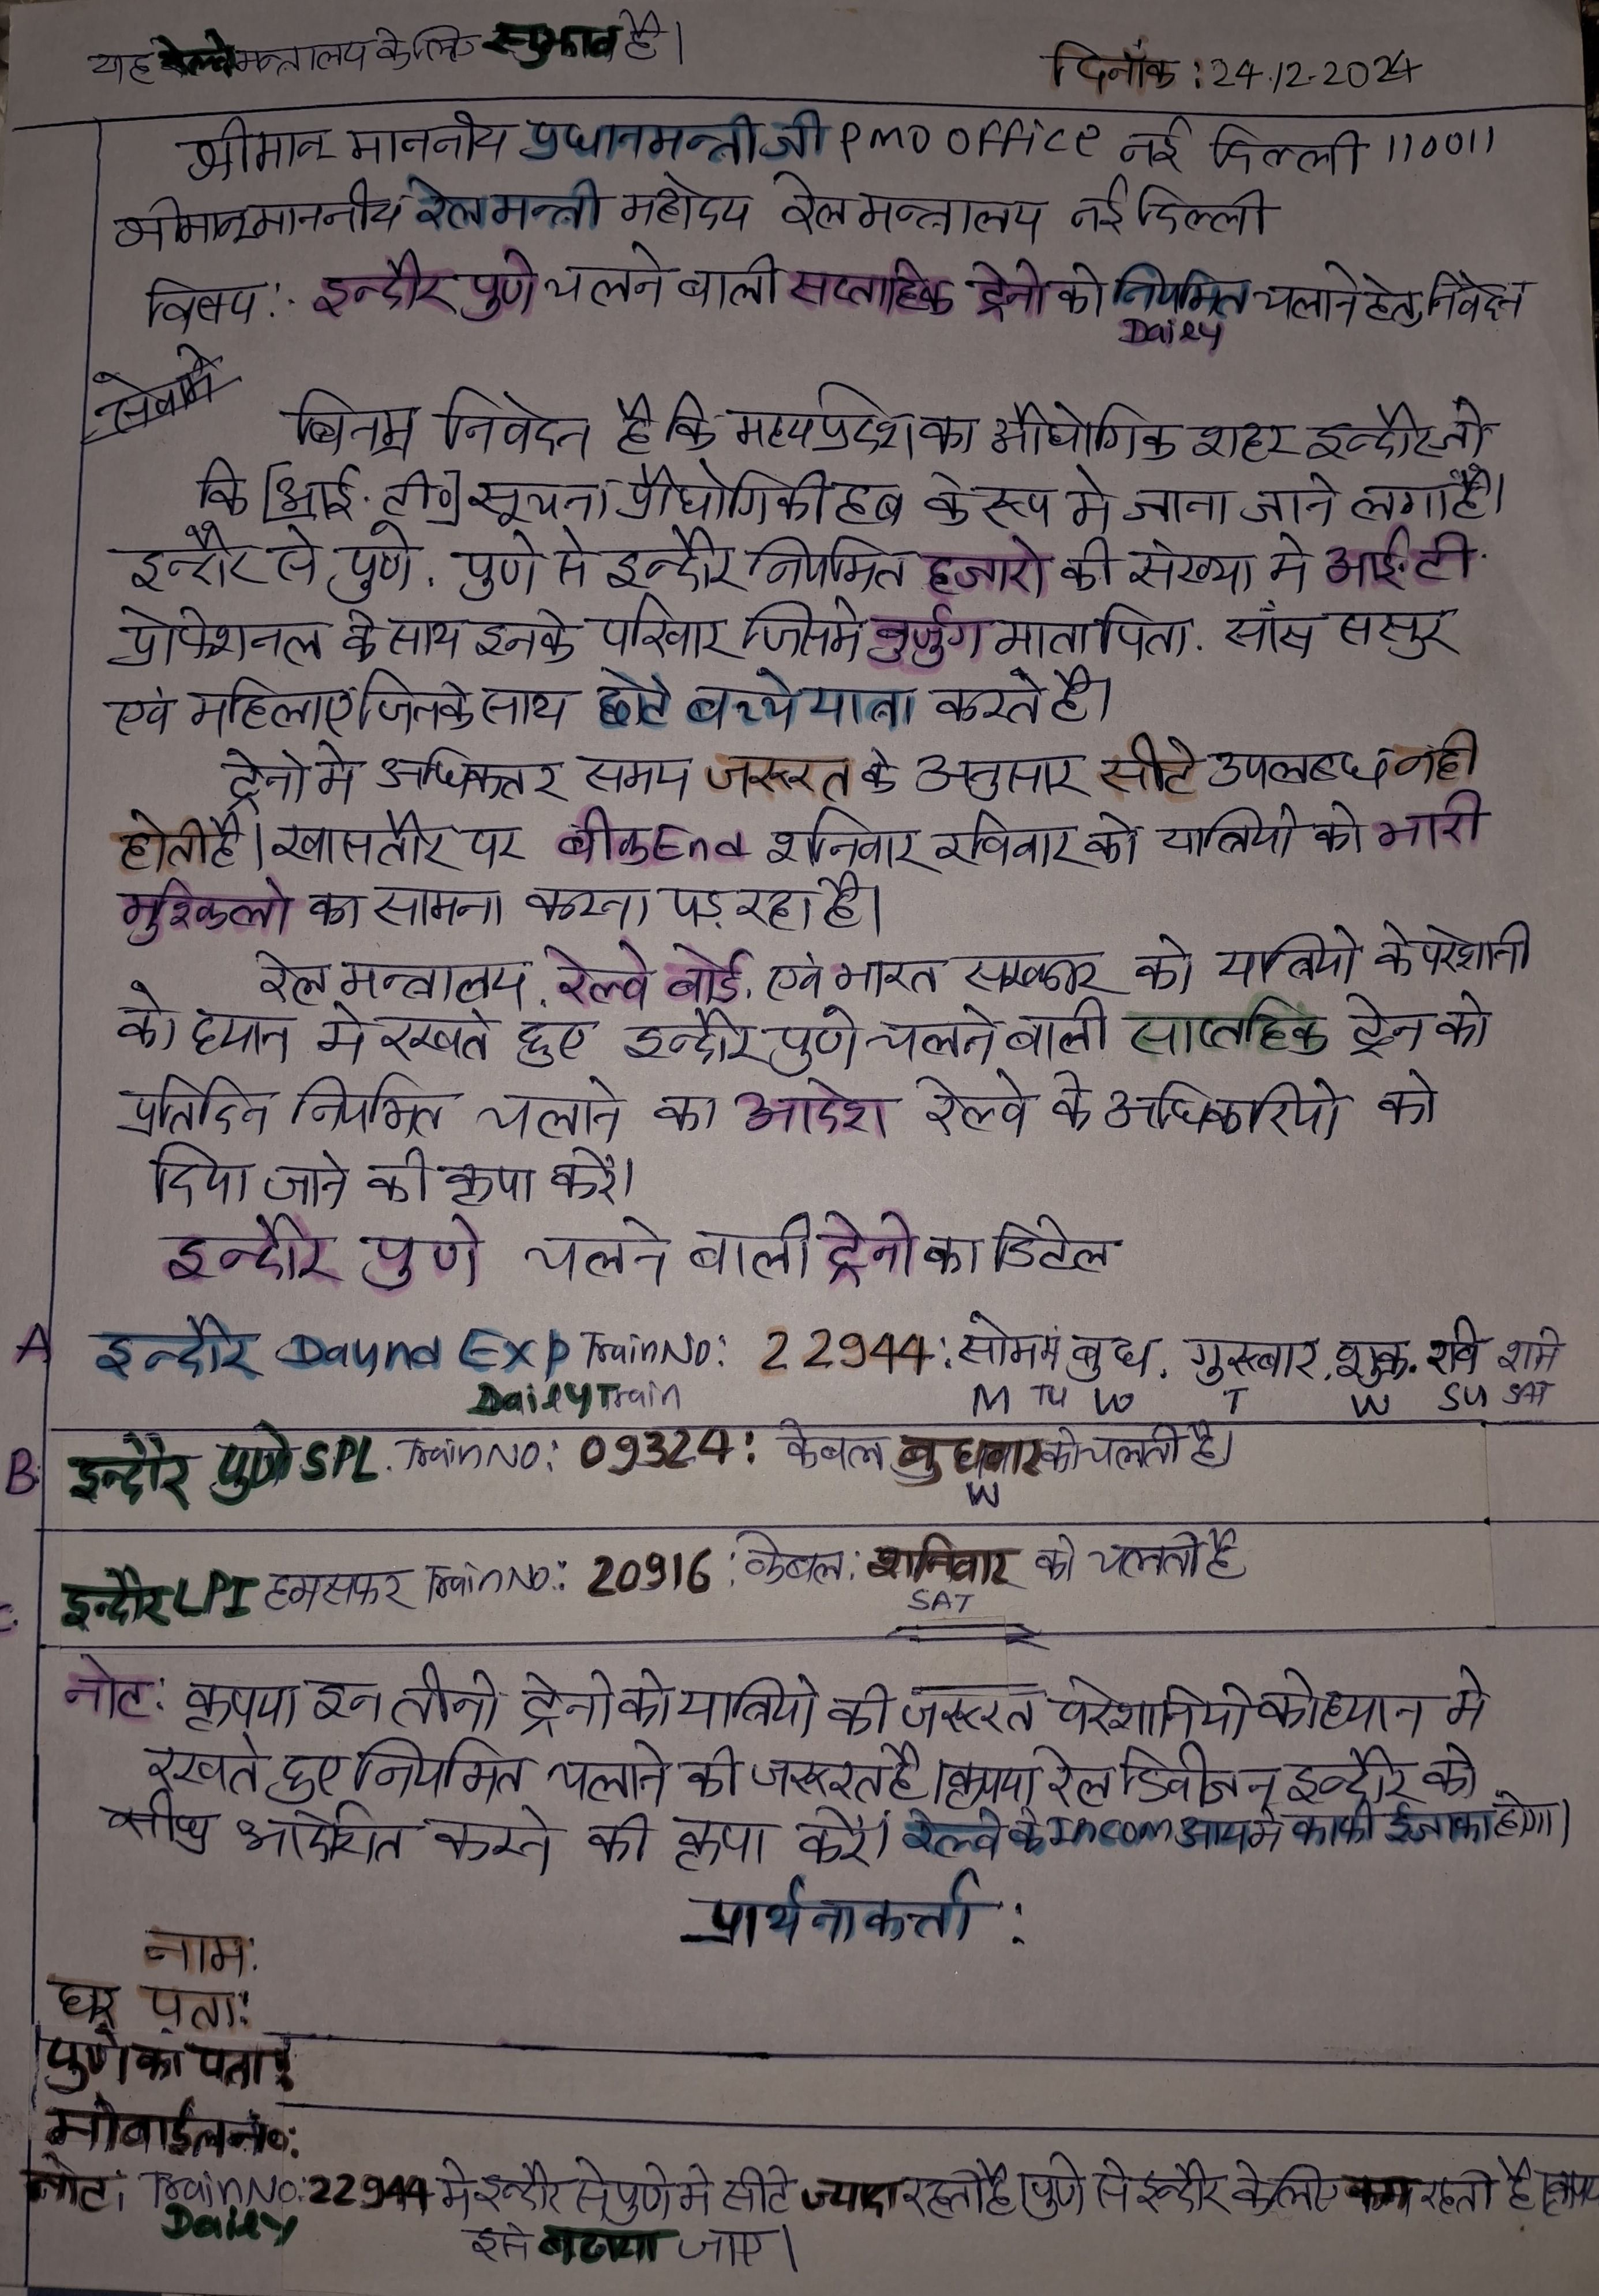 यह रेल्वे मन्त्रालय के लिए सुझाव है।
दिनाँक : 24.12.2024
श्रीमान माननीय प्रधानमन्त्री जी PMO OFFiCE नई दिल्ली 110011
श्रीमान माननीय रेल मन्त्री महोदय रेल मन्त्रालय नई दिल्ली
विषय : इन्दौर पुणे चलने वाली सप्ताहिक ट्रेनो को नियमित चलाने हेतु निवेदन
Daiey
सेवामे
विनम्र निवेदन है कि मध्यप्रदेश का औघोगिक शहर इन्दौर जो
कि [आई. टी०] सूचना प्रौघोगिकी हब के रूप मे जाना जाने लगा है।
इन्दौर से पुणे. पुणे से इन्दौर नियमित हजारो की संख्या मे आई.टी.
प्रोफेशनल के साथ इनके परिवार जिसमे बुर्जुग माता पिता. साँस ससुर
एवं महिलाए जिनके साथ छोटे बच्चे यात्रा करते है।
ट्रेनो मे अधिकतर समय जरूरत के अनुसार सीटे उपलब्ध नही
होती है। खासतौर पर वीकEnd शनिवार रविवार को यात्रियो को भारी
मुश्किलो का सामना करना पड़ रहा है।
रेल मन्त्रालय. रेल्वे बोर्ड. एवं भारत सरकार को यात्रियो के परेशानी
को ध्यान मे रखते हुए इन्दौर पुणे चलने वाली साप्तहिक ट्रेन को
प्रतिदिन नियमित चलाने का आदेश रेल्वे के अधिकारियो को
दिया जाने की कृपा करें।
इन्दौर पुणे चलने वाली ट्रेनो का डिटेल
A इन्दौर Daund EXP TrainNO: 22944: सोम मं बुध. गुरूवार. शुक्र. रवि शनि
DailyTrain M TU W T W SU SAT
B. इन्दौर पुणे SPL. TrainNO: 09324: केवल बुधवार को चलती है।
W
C. इन्दौर LPI हमसफर TrainNO.: 20916 : केवल: शनिवार को चलती है
SAT
नोट: कृपया इन तीनो ट्रेनो को यात्रियो की जरूरत परेशानियो को ध्यान मे
रखते हुए नियमित चलाने की जरूरत है। कृपया रेल डिवीजन इन्दौर को
शीघ्र आदेशित करने की कृपा करें। रेल्वे के Incom आय मे काफी ईजाफा होगा।
प्रार्थनाकर्त्ता :
नाम:
घर पता:
पुणे का पता:
मोबाईल नं०:
नोट: TrainNO: 22944 मे इन्दौर से पुणे मे सीटे ज्यादा रहती है। पुणे से इन्दौर के लिए कम रहती है।
Dailey
इसे बढाया जाए।